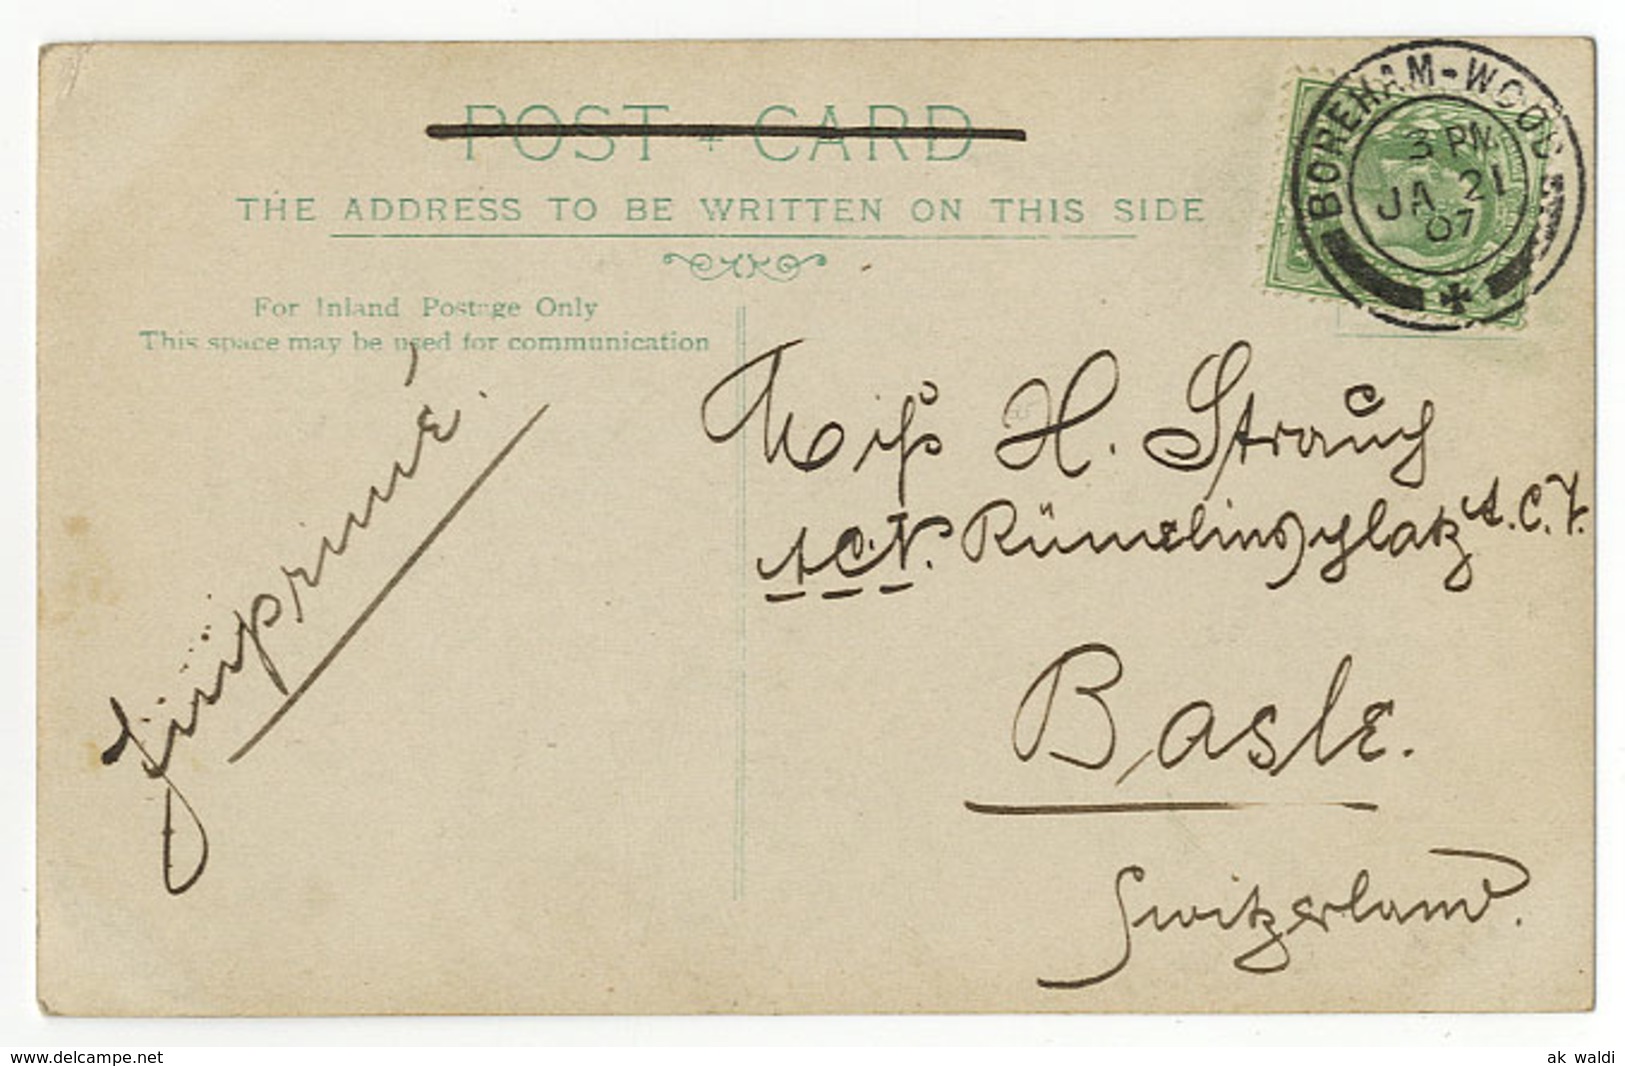 POST CARD
THE ADDRESS TO BE WRITTEN ON THIS SIDE
BOREHAM-WOOD
3 PM
JA 21
07
For Inland Postage Only
This space may be used for communication
Imprimé.
Miss H. Strauch
Rümelinsplatz
Basle.
Switzerland.
www.delcampe.net
ak waldi